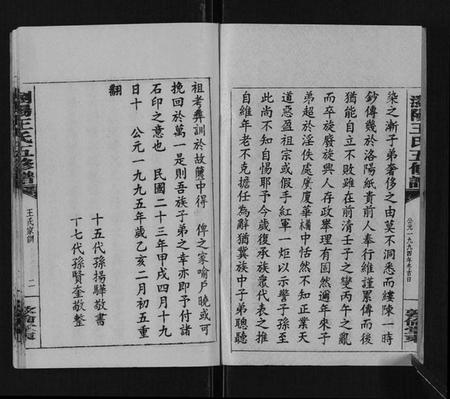 瀏陽王氏五修譜
公元一九九四年冬吉日
敦倫堂
染之漸子弟奢侈之由莫不洞悉而縷陳一時
鈔傳幾於洛陽紙貴前人奉行維謹累傳而後
猶能自立不敗雖在前清壬子之變丙午之亂
而卒旋廢旋興人存政舉理有固然邇年來子
弟超於淫佚處廣廈華構中恬然不知正業天
道惡盈祖宗或假手紅軍一炬以示警子孫至
此尚不知自惕耶予今歲復承族眾代表之推
自維年老不克擔任為辭猶冀族中子弟聰聽
祖考彝訓於故簏中得 俾之家喻戶曉或可
挽回於萬一是則吾族子弟之幸亦即予付諸
石印之意也 民國二十三年甲戌四月十九
日十 公元一九九五年歲乙亥二月初五重
翻
十五代孫揚驊敬書
十七代孫賢奎敬整
瀏陽王氏五修譜
王氏家訓
二